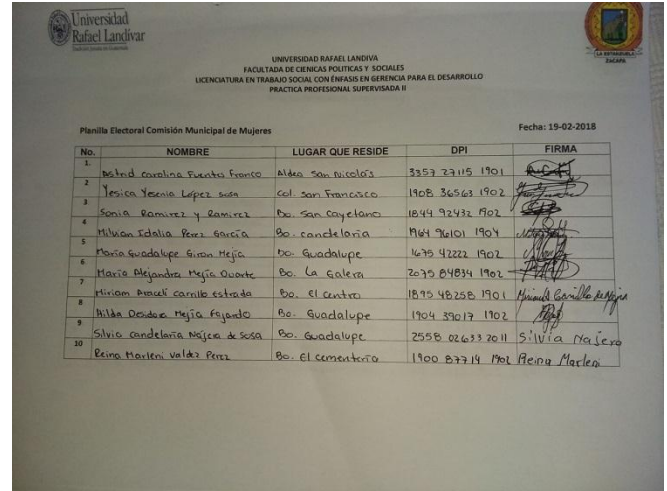 Universidad
Rafael Landívar
Tradición Jesuita en Guatemala
LA ESTANZUELA
ZACAPA
UNIVERSIDAD RAFAEL LANDIVA
FACULTADA DE CIENICAS POLITICAS Y SOCIALES
LICENCIATURA EN TRABAJO SOCIAL CON ÉNFASIS EN GERENCIA PARA EL DESARROLLO
PRACTICA PROFESIONAL SUPERVISADA II
Planilla Electoral Comisión Municipal de Mujeres Fecha: 19-02-2018
No. NOMBRE LUGAR QUE RESIDE DPI FIRMA
1. Astrid Carolina Fuentes Franco Aldea San Nicolás 3357 27115 1901
2 Yesica Yesenia López Sosa Col. San Francisco 1908 36563 1902
3 Sonia Ramirez y Ramirez Bo. San Cayetano 1844 92432 1902
4 Idalia Perez García Bo. candelaria 1964 96101 1904
5 María Guadalupe Giron Mejía Bo. Guadalupe 1675 42222 1902
6 María Alejandra Mejía Duarte Bo. La Galera 2075 84834 1902
7 Miriam Araceli carrillo estrada Bo. el centro 1895 48258 1901
8 Hilda Mejía Fajardo Bo. Guadalupe 1904 39017 1902
9 Silvia candelaria Najera de Sosa Bo. Guadalupe 2558 02633 2011 Silvia Najera
10 Reina Marleni Valdez Perez Bo. El cementerio 1900 87714 1902 Reina Marleni